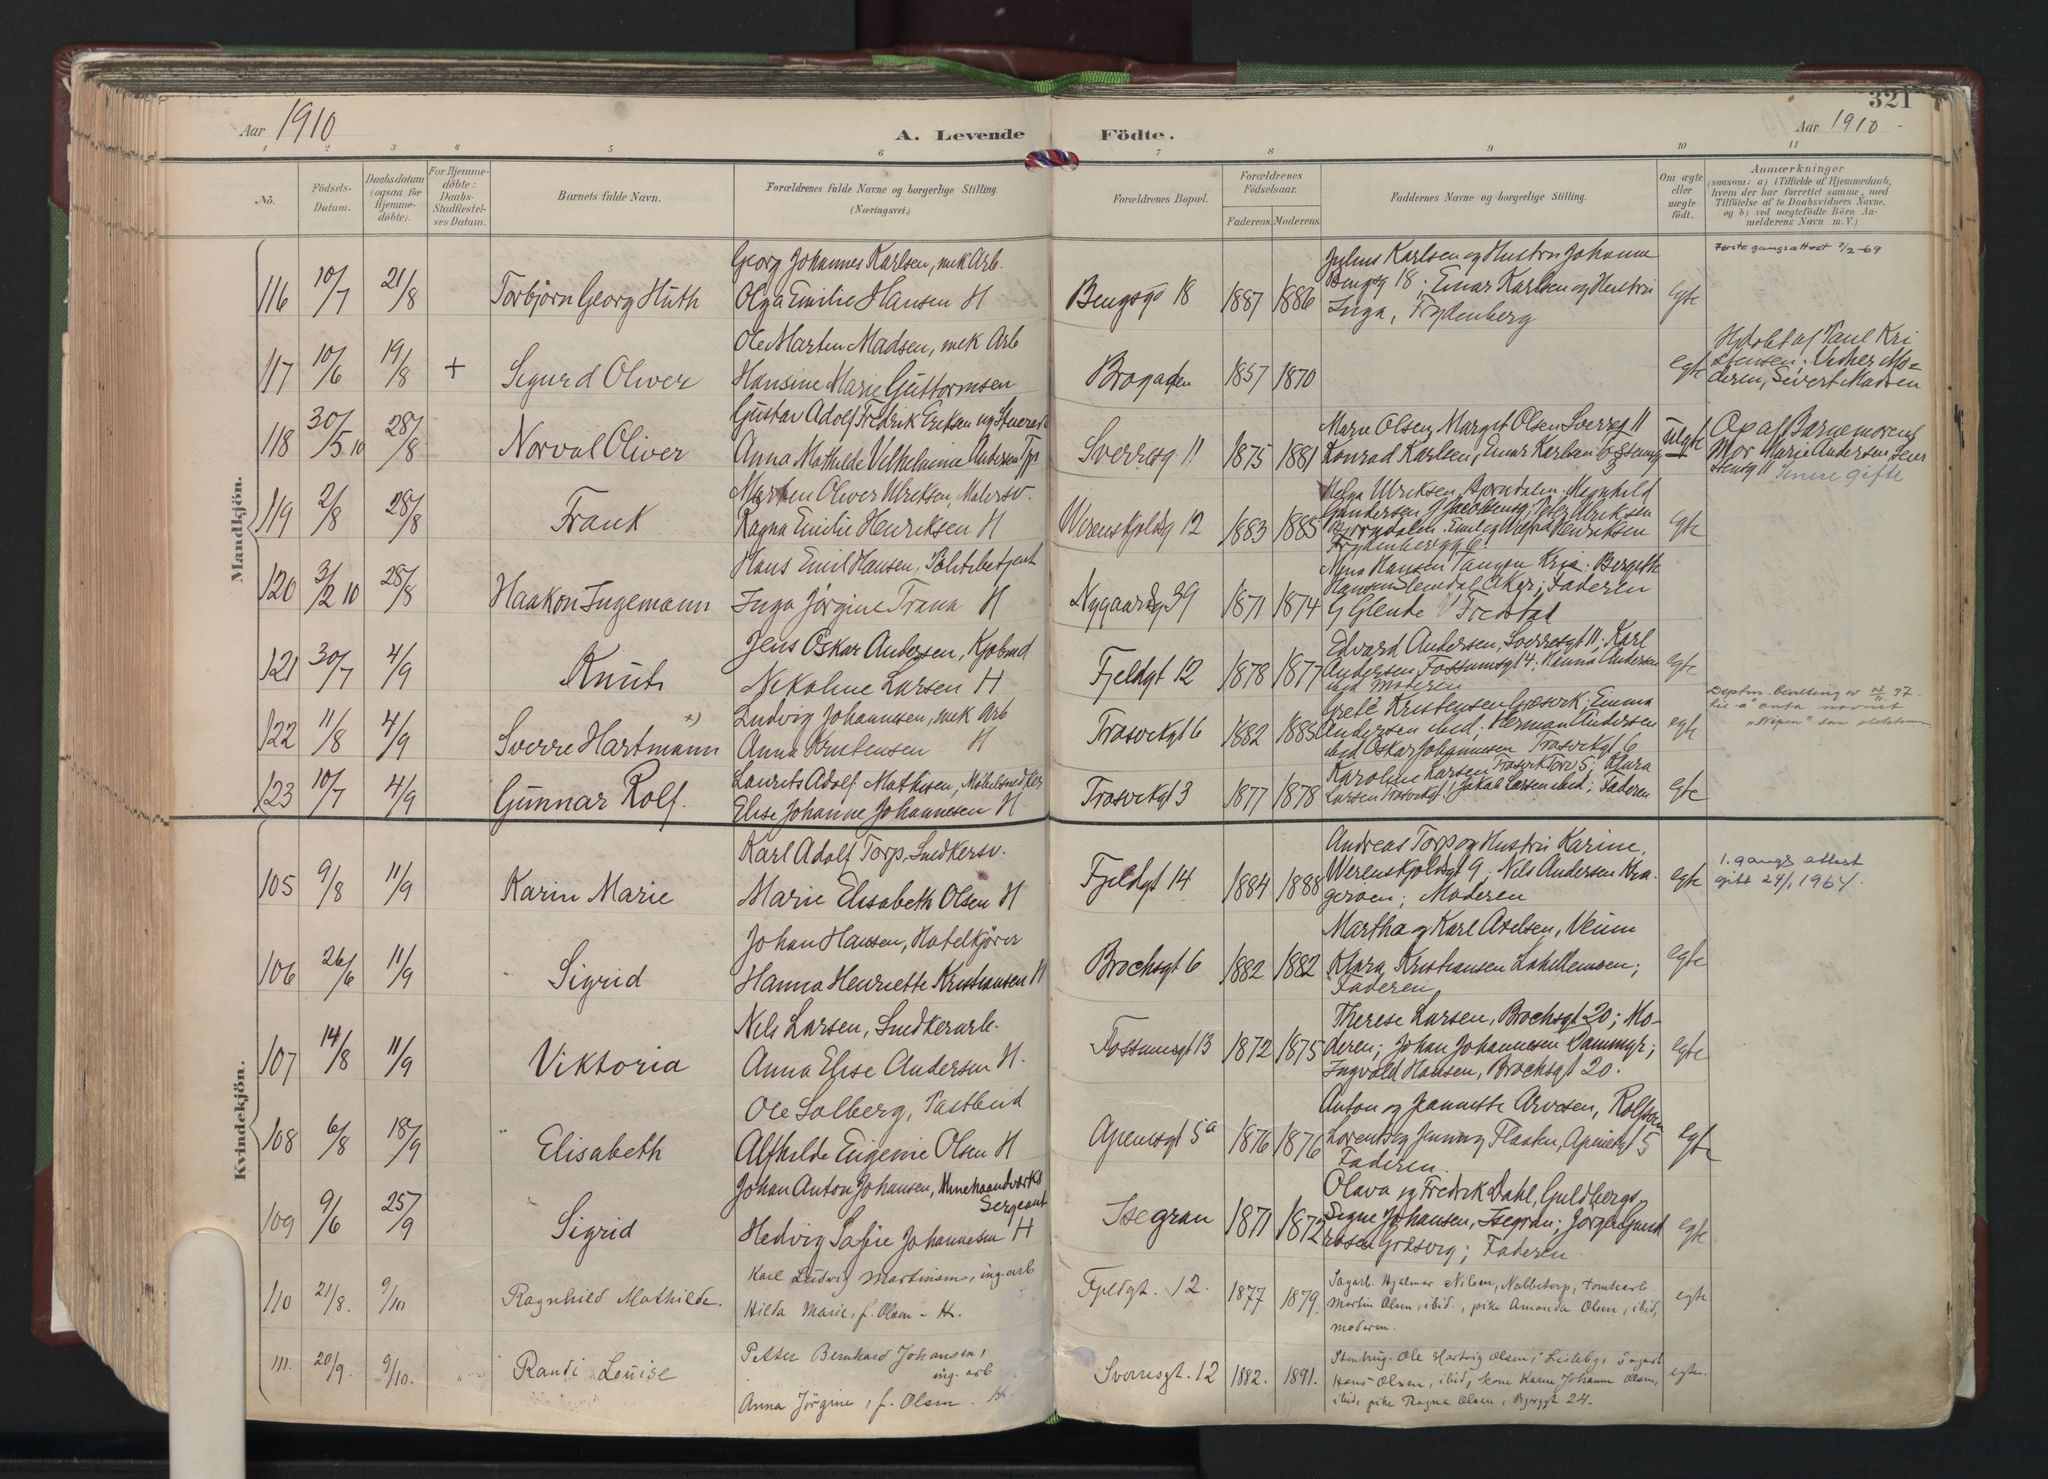 321
Aar 1910
A. Levende
Födte.
Aar 1910
1 2 3 4 5 6 7 8 9 10 11
No.
Födsels-
Datum.
Daabsdatum
(ogsaa for
Hjemme-
döbte).
For Hjemme-
döbte:
Daabs-
Stadfæstel-
ses Datum.
Barnets fulde Navn.
Forældrenes fulde Navne og borgerlige Stilling.
(Næringsvei.)
Forældrenes Bopæl.
Forældrenes
Födselsaar.
Faderens. Moderens.
Faddernes Navne og borgerlige Stilling.
Om ægte
eller
uægte
födt.
Anmærkninger
(saasom: a) i Tilfælde af Hjemmedaab,
hvem der har forrettet samme, med
Tilföielse af to Daabsvidners Navne,
og b) ved uægtefödte Börn An-
melderens Navn m. V.)
Mandkjön.
116 10/7 21/8 Torbjörn Georg Huth
Georg Johannes Karlsen, mek Arb.
Olga Emilie Hansen H
Bengsgt 18 1887 1886
Julius Karlsen og Hustru Johanne
Bengsg 18; Einar Karlsen og Hustru
Inga, Frydenberg
egte
Förstegangsattest 7/2-69
117 10/6 19/8 + Sigurd Oliver
Ole Marten Madsen, mek Arb
Hansine Marie Guttormsen
Brogaden 1857 1870
egte
Hjdöbt af Paul Kri
stensen; Vidner Mo-
deren, Sivert Madsen
118 30/5 10 28/8 Norval Oliver
Gustav Adolf Fredrik Eriksen
Anna Mathilde Vilhelmine Andersen
Sverresg 11 1875 1881
Marie Olsen, Margit Olsen Sverresg 11
Konrad Karlsen, Einar Karlsen
uegte
Op af Barnemorens
Mor Marie Andersen
Senere gifte
119 2/8 28/8 Frank
Marten Oliver Ulriksen, Malersv.
Ragna Emilie Henriksen H
Werenskjoldg 12 1883 1885
Helga Ulriksen, Bjorndalen; Magnhild
Gundersen; Peter Ulriksen
Bjorndalen; Emil og Henriksen
Frydenberg 6
egte
120 3/2 10 28/8 Haakon Ingemann
Hans Emil Hansen, Politibetjent
Inga Jörgine Trana H
Nygaardsg 39 1871 1874
Hansen Tangen Kria; Bergith
Hansen Slemdal Aker; Faderen
G Glende V Fredstad
egte
121 30/7 4/9 Knut
Jens Oskar Andersen, Kjøbmd
Nikoline Larsen H
Fjeldgt 12 1878 1877
Edvard Andersen, Sverresgt 11; Karl
Andersen, Fossumsgt 4; Hanna Andersen
ibid Moderen
egte
122 11/8 4/9 Sverre Hartmann x)
Ludvig Johannesen, mek Arb
Anna Kristensen H
Trosvikgt 6 1882 1885
Grete Kristensen Græsvik; Emma
Andersen ibid; Herman Andersen
ibid Oskar Johannesen Trosvikgt 6
egte
123 10/7 4/9 Gunnar Rolf.
Laurits Adolf Mathisen, Möbelsnedker
Elise Johanne Johannesen H
Trosvikgt 3 1877 1878
Karoline Larsen Trosviktorv 5; Klara
Larsen Trosvikgt 1 Jakob Larsen ibid; Faderen
egte
Kvindekjön.
105 9/8 11/9 Karin Marie
Karl Adolf Torp, Snedkersv.
Marie Elisabeth Olsen H
Fjeldgt 14 1884 1888
Andreas Torp og Hustru Karine,
Werenskjoldsgt 9; Nils Andersen Kra-
geroen; Moderen
egte
1. gangs attest
gitt 24/1 1964.
106 26/6 11/9 Sigrid
Johan Hansen, Hotelkjörer
Hanna Henriette Kristiansen H
Brochsgt 6 1882 1882
Martha og Karl Axelsen, Veum
Klara Kristiansen Lahellemoen;
Faderen
egte
107 14/8 11/9 Viktoria
Nils Larsen, Snedkerarb.
Anna Elise Andersen H.
Fossumsgt 13 1872 1875
Therese Larsen, Brochsgt 20; Mo-
deren; Johan Johannesen Dammyr;
Ingvald Hansen, Brochsgt 20.
egte
108 6/8 18/9 Elisabeth
Ole Solberg, Postbud
Alfhilde Eugenie Olsen H
Apenesgt 5a 1876 1876
Anton og Jeannette Arvesen, Rolfsøen
Lorents og Jenny Flaten, Apenesgt 5
Faderen.
egte
109 9/6 25/9 Sigrid
Johan Anton Johansen, Minehaandverks
Sergeant
Hedvig Sofie Johannesen H
Isegran 1871 1872
Olava og Fredrik Dahl, Guldbergs,
Signe Johansen, Isegran; Jörgen Gund
ersen Græsvig; Faderen.
egte
110 21/8. 9/10 Ragnhild Mathilde.
Karl Ludvig Martinsen, ing. arb
Hilda Marie, f. Olsen - H.
Fjeldgt. 12. 1877 1879.
Sagarb. Hjalmar Nilsen, Nabbetorp, tomtearb.
Martin Olsen, ibid., pike Amanda Olsen, ibid,
moderen.
egte
111. 20/9. 9/10. Randi Louise
Petter Bernhard Johansen,
ing. arb
Anna Jörgine, f. Olsen. H
Sverresgt. 12 1882. 1891.
Stenhug. Ole Hartvig Olsen, Lisleby, Sagarb
Hans Olsen, ibid, kone Karen Johanne Olsen,
ibid, pike Ragna Olsen, Bjerggt 24.
egte.